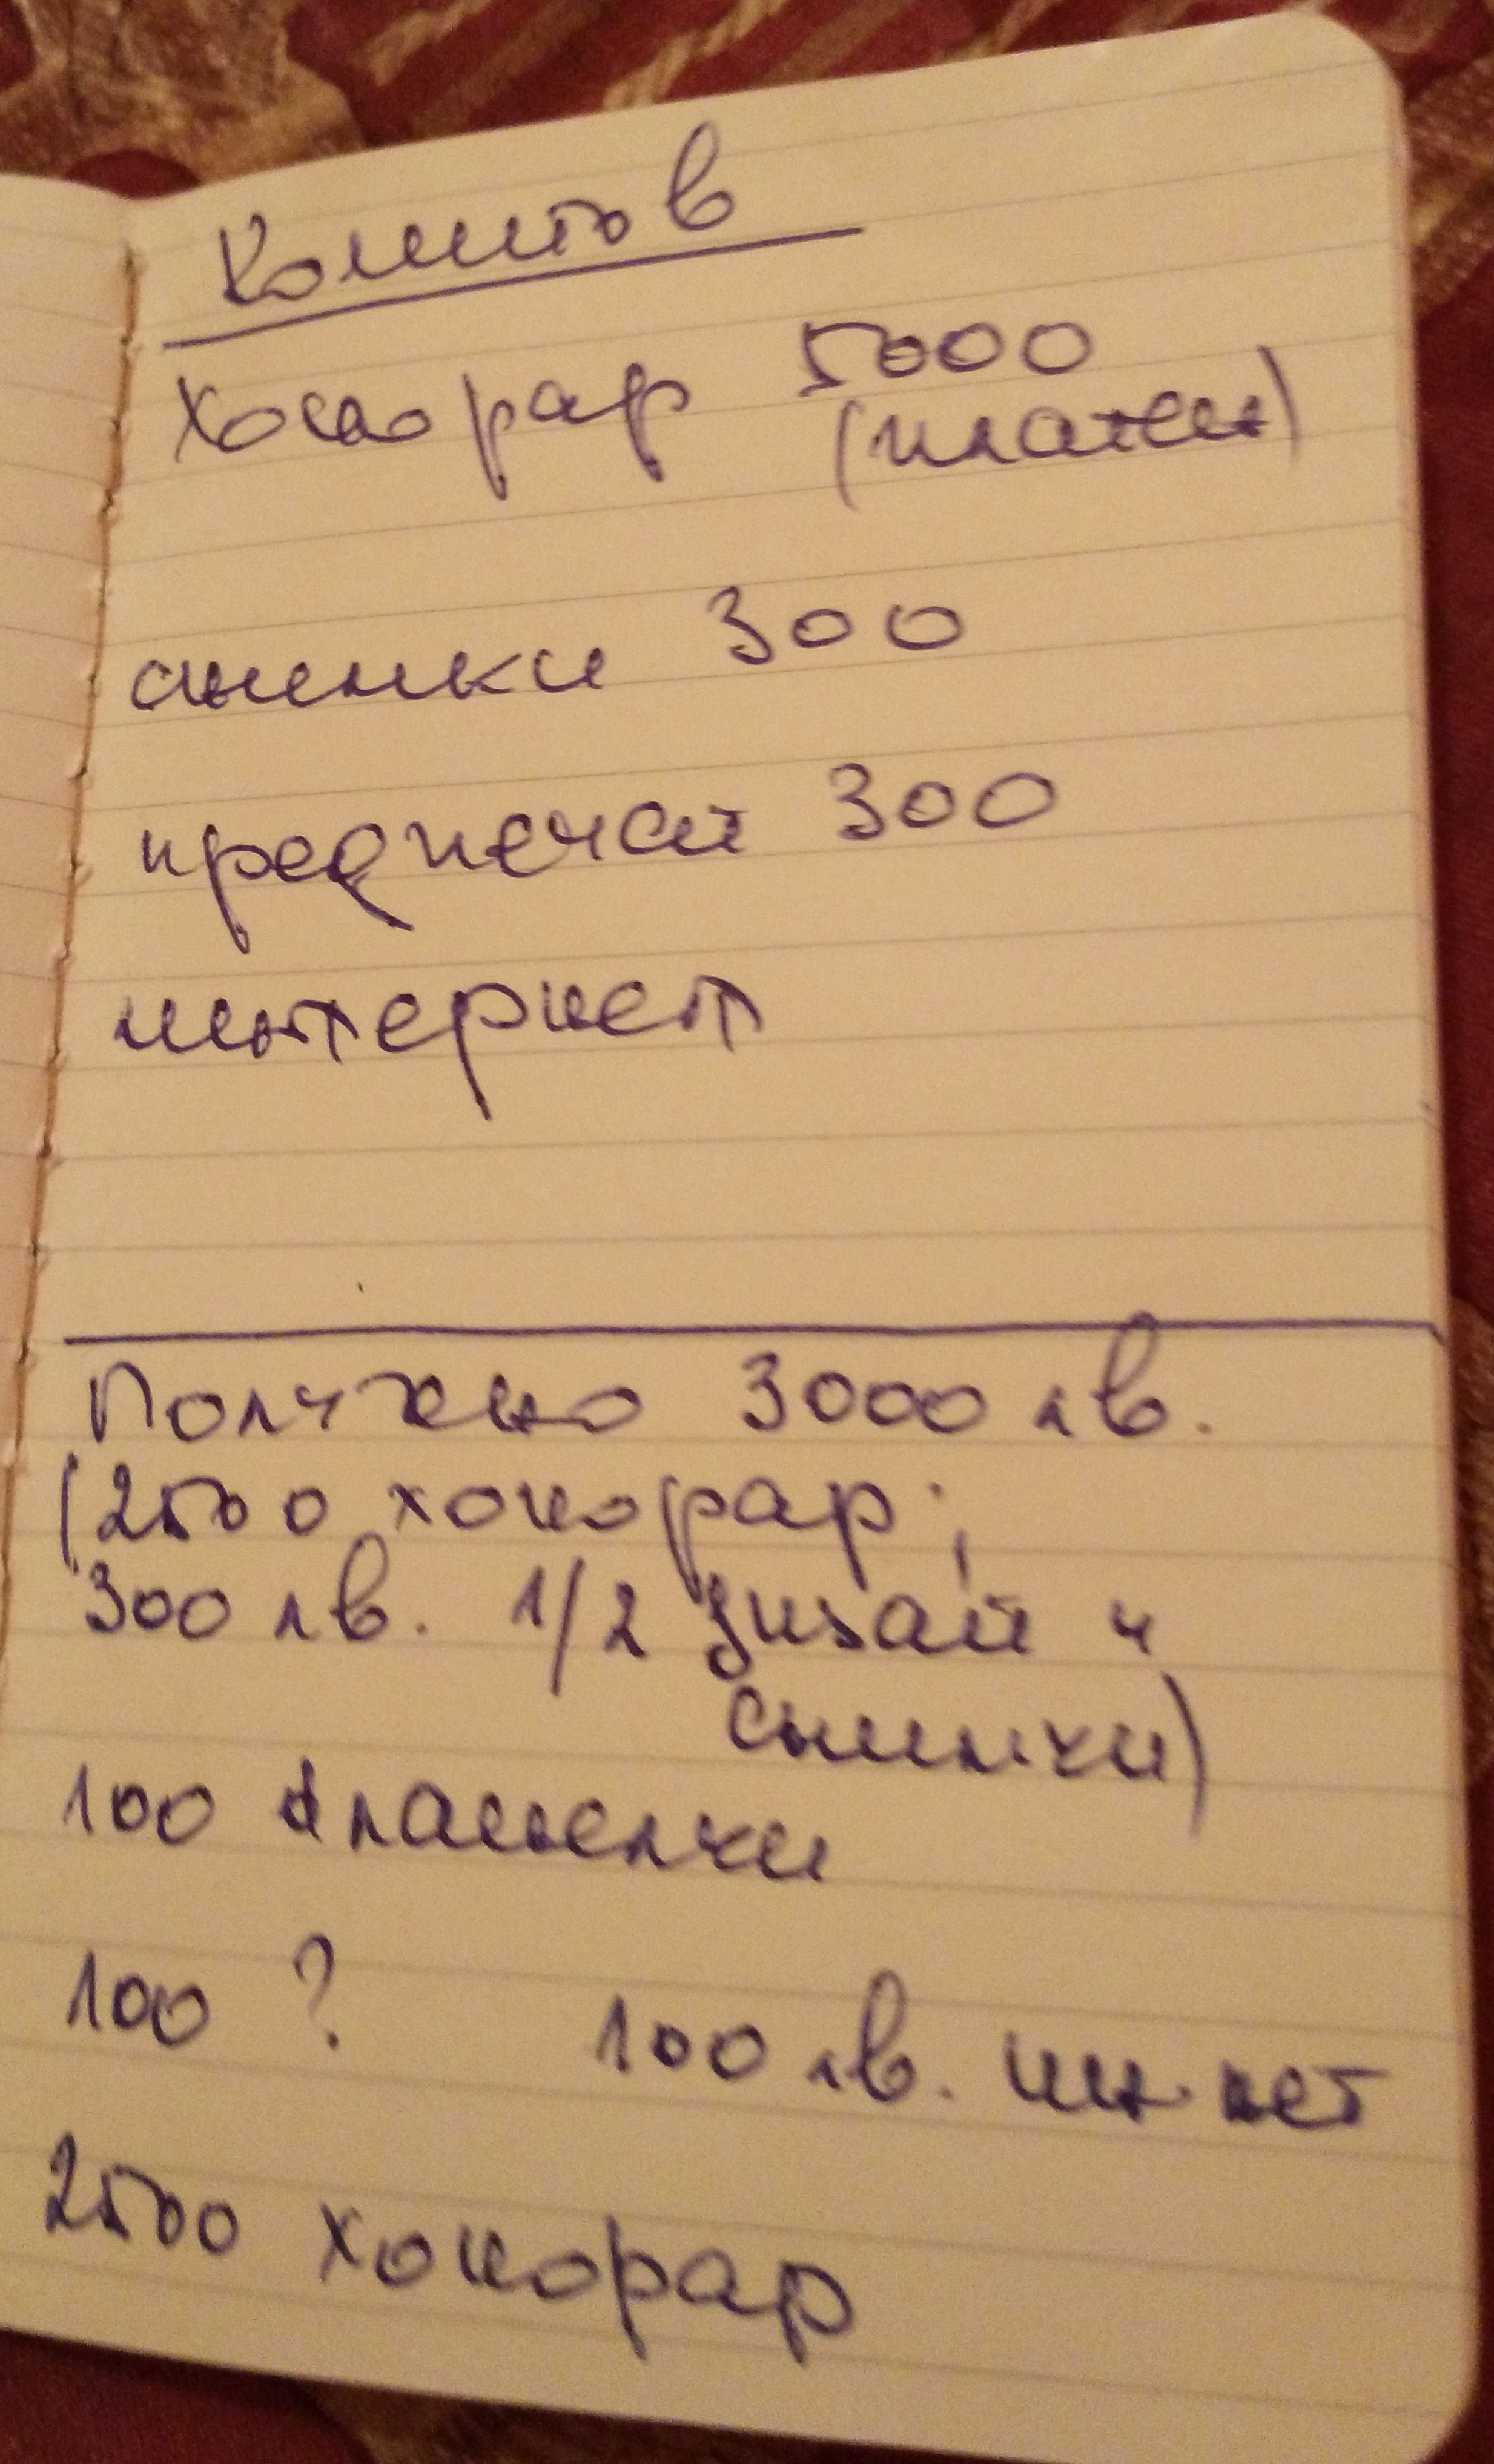 Комитов
хонорар 5000
(платен)
снимки 300
предпечат 300
интернет
Получено 3000 лв.
(2500 хонорар;
300 лв. 1/2 дизай и
снимки)
100
100 ? 100 лв. инт. нет
2500 хонорар